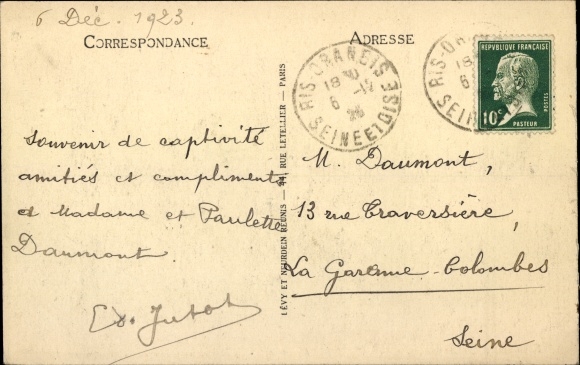 6 Déc. 1923.
CORRESPONDANCE
Souvenir de captivité
amitiés et compliments
à Madame et Paulette
Daumont.
LÉVY ET NEURDEIN RÉUNIS — 44, RUE LETELLIER — PARIS
ADRESSE
RIS-ORANGIS
18 30
6 -12
23
SEINE ET OISE
RIS-ORA
18
6
SEIN
RÉPUBLIQUE FRANÇAISE
10c
POSTES
PASTEUR
M. Daumont,
13 rue Traversière,
La Garenne-Colombes
Seine